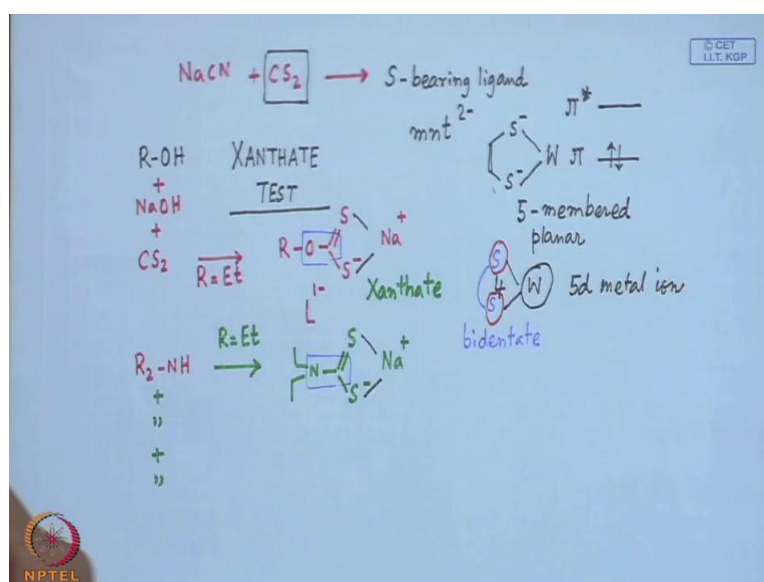 © CET
I.I.T. KGP
NaCN + CS2 → S-bearing ligand
mnt 2-
S-
S-
W
π*
π ⥮
5-membered
planar
R-OH
+
NaOH
+
CS2
XANTHATE
TEST
R=Et
R-O-
S
S-
Na+
L1-
Xanthate
S
S
4
W
5d metal ion
bidentate
R2-NH
+
"
+
"
R=Et
N
S
S-
Na+
NPTEL